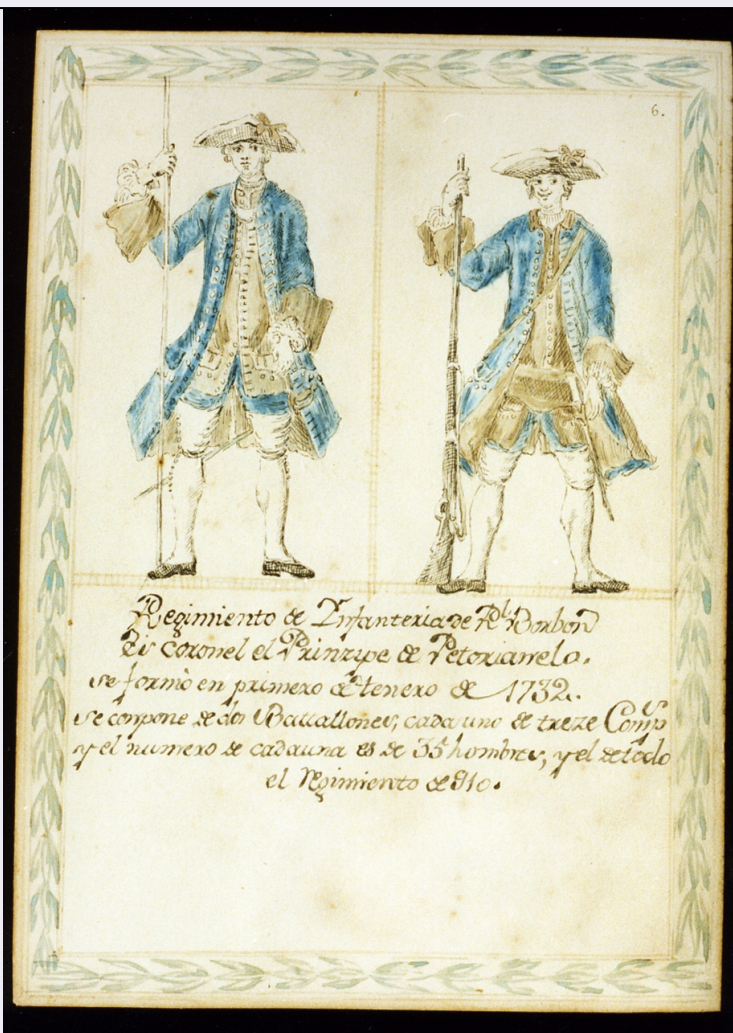 6.
Regimiento de Infanteria de Rl. Borbon
Es Coronel el Prinzipe de Petorianelo.
se formò en primero de henero de 1732.
se conpone de dos Battallones, cada uno de treze Comps
y el numero de cada una es de 35 hombres, y el de todo
el Regimiento de 910.